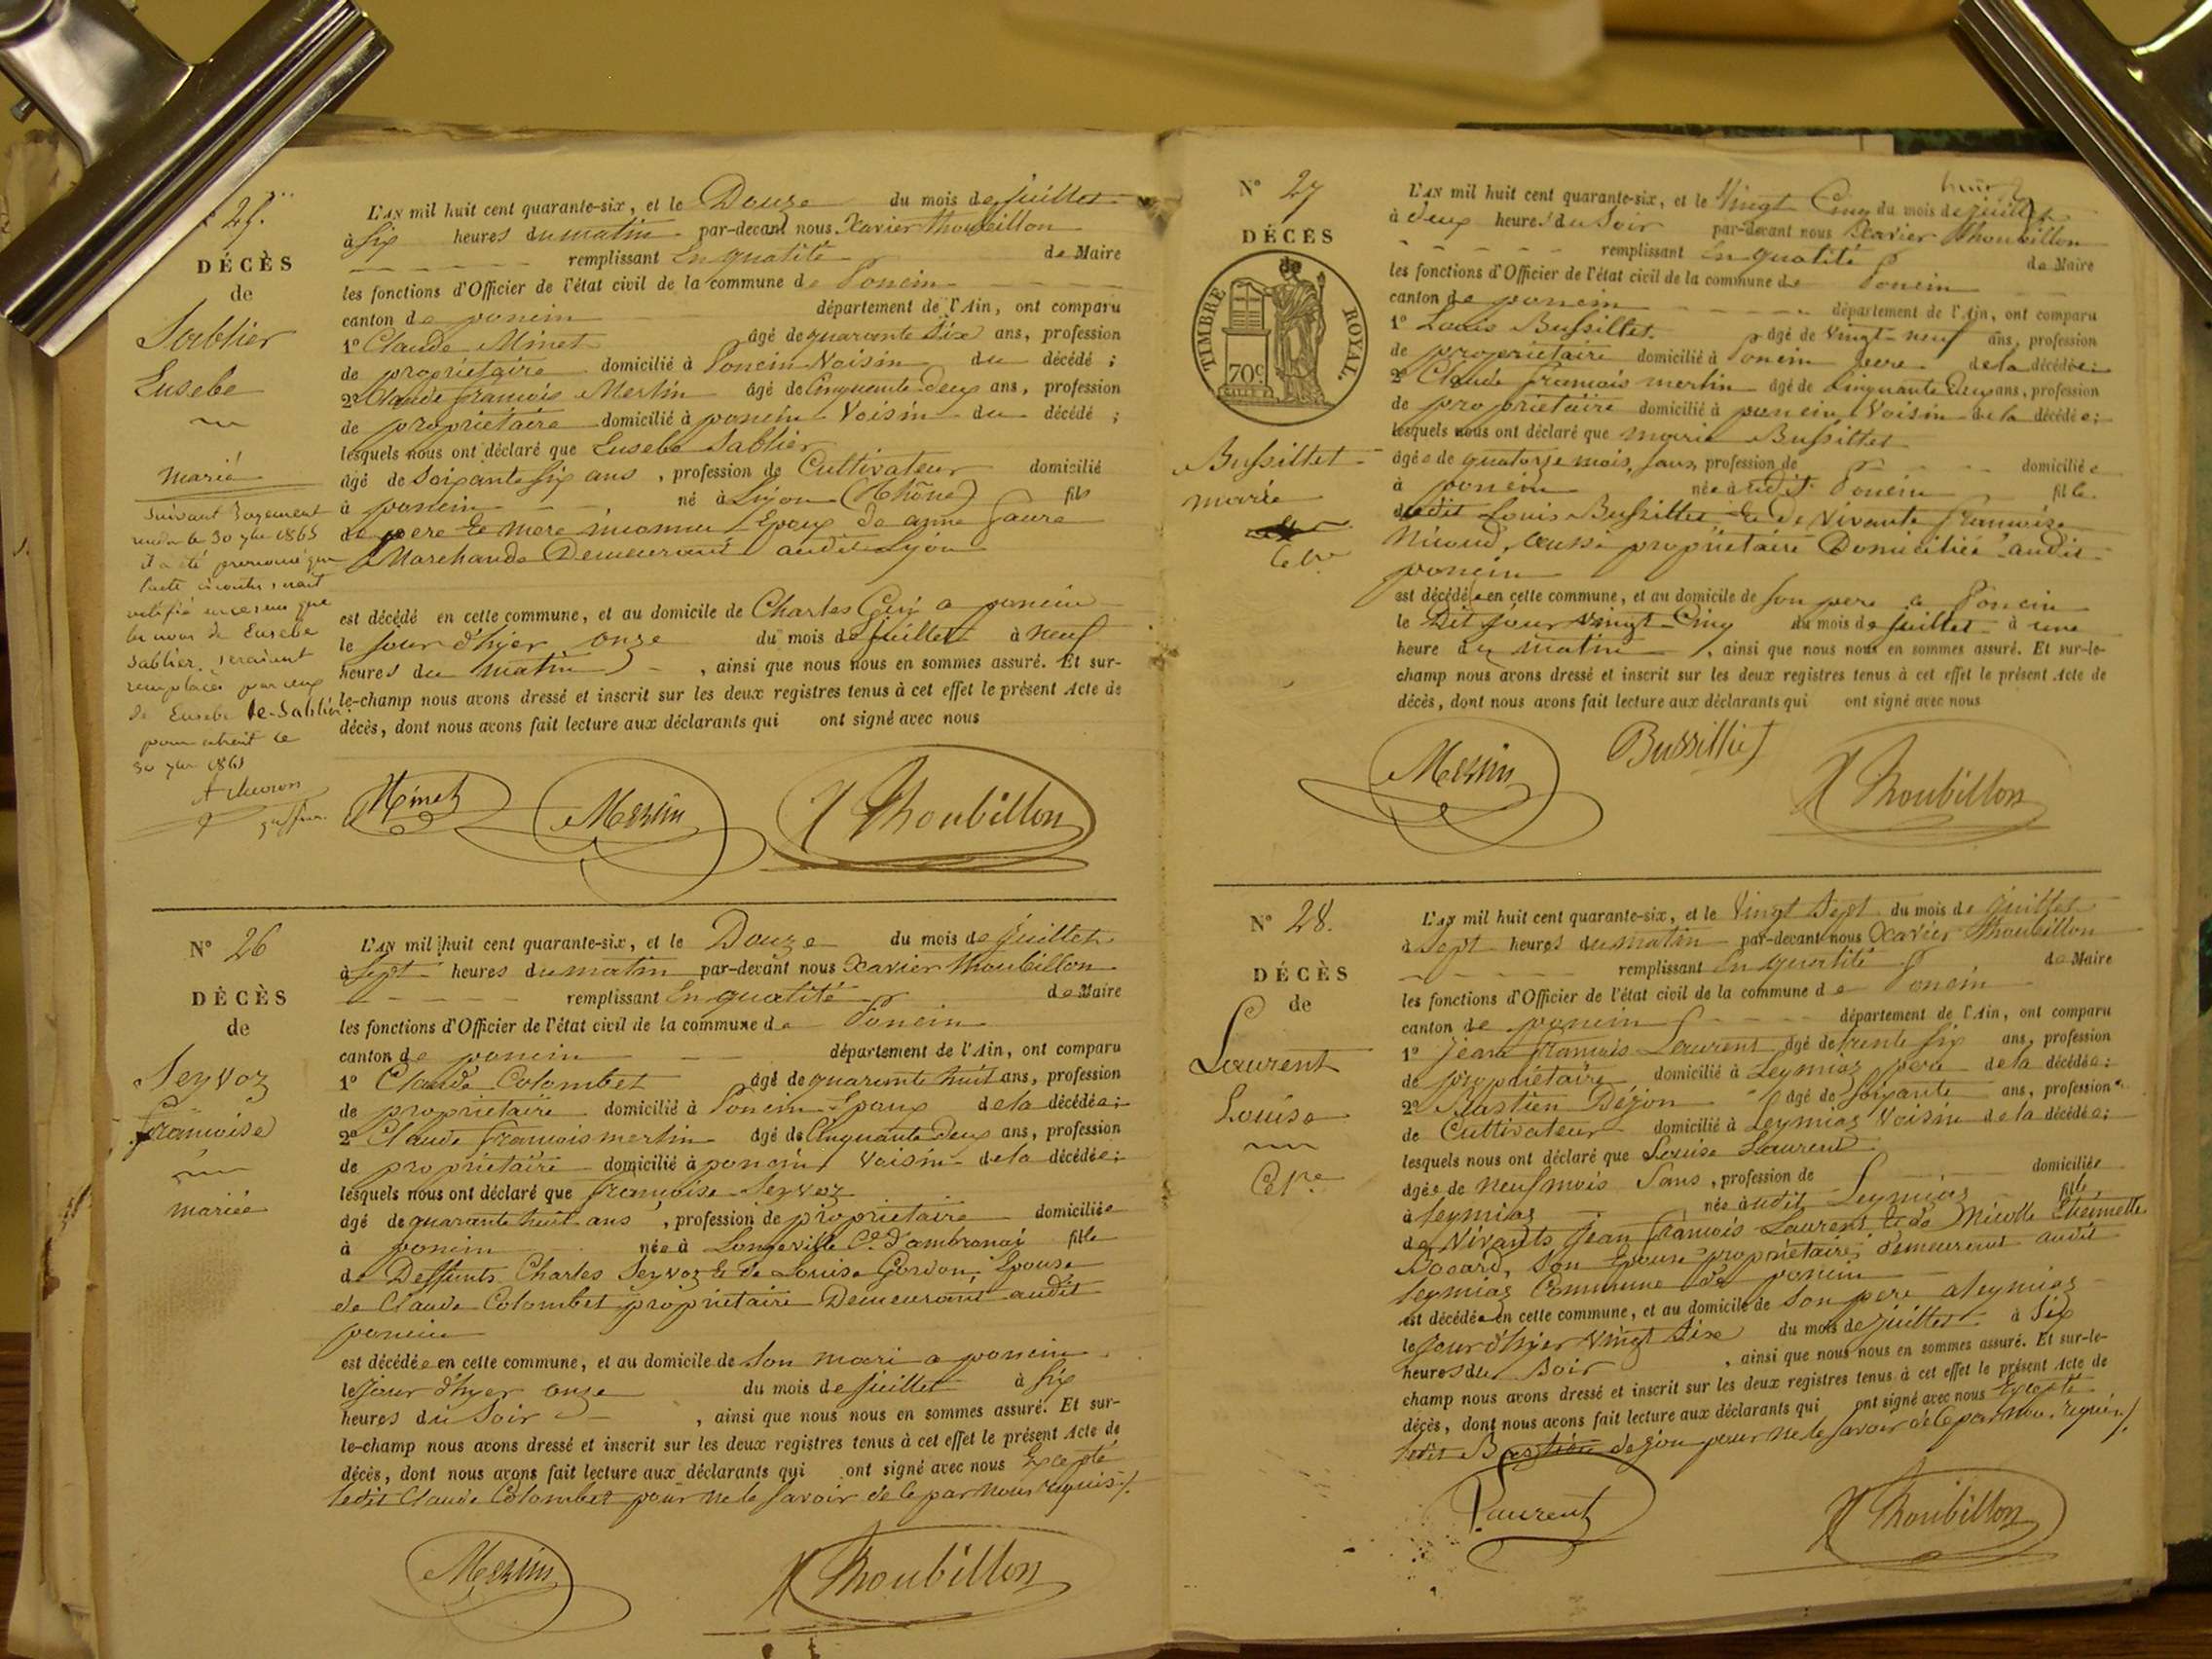 25.
DÉCÈS
de
Sablier
Eusebe
marié
Suivant Jugement
rendu le 30 9bre 1865
il a été prononcé que
l'acte ci contre serait
rectifié en ce sens que
les noms de Eusebe
Sablier seraient
remplacés par ceux
de Eusebe de Sablier
pour extrait ce
30 9bre 1865
L'AN mil huit cent quarante-six, et le Douze du mois de juillet
à Six heures du matin par-devant nous Xavier Thoubillon
remplissant En qualité de Maire
les fonctions d'Officier de l'état civil de la commune de Poncin
canton de poncin département de l'Ain, ont comparu
1º Claude Minet âgé de quarante Six ans, profession
de propriétaire domicilié à Poncin Voisin du décédé ;
2º Claude françois Merlin âgé de Cinquante deux ans, profession
de propriétaire domicilié à poncin Voisin du décédé ;
lesquels nous ont déclaré que Eusebe Sablier
âgé de Soixante Six ans, profession de Cultivateur domicilié
à poncin né à Lyon (Rhône) fils
de pere et mere inconnu Epoux de anne faure
Marchande Demeurant audit Lyon
est décédé en cette commune, et au domicile de Charles Guy a poncin
le Jour d'hyer onze du mois de juillet à neuf
heures du matin, ainsi que nous nous en sommes assuré. Et sur-
le-champ nous avons dressé et inscrit sur les deux registres tenus à cet effet le présent Acte de
décès, dont nous avons fait lecture aux déclarants qui ont signé avec nous
Minet Merlin X Thoubillon
Nº 26
DÉCÈS
de
Seyvoz
françoise
mariée
L'AN mil huit cent quarante-six, et le Douze du mois de juillet
à Sept heures du matin par-devant nous Xavier Thoubillon
remplissant En qualité de Maire
les fonctions d'Officier de l'état civil de la commune de Poncin
canton de poncin département de l'Ain, ont comparu
1º Claude Colombet âgé de quarante huit ans, profession
de propriétaire domicilié à Poncin Epoux de la décédée ;
2º Claude françois merlin âgé de Cinquante Deux ans, profession
de propriétaire domicilié à poncin Voisin de la décédée ;
lesquels nous ont déclaré que françoise Seyvoz
âgé de quarante huit ans, profession de propriétaire domiciliée
à poncin née à Longeville Cne d'ambronai fille
de Deffunts Charles Seyvoz et de Louise Gordon, Epouse
de Claude Colombet propriétaire Demeurant audit
poncin
est décédée en cette commune, et au domicile de Son mari a poncin
le Jour d'hyer onze du mois de juillet à Six
heures du Soir, ainsi que nous nous en sommes assuré. Et sur-
le-champ nous avons dressé et inscrit sur les deux registres tenus à cet effet le présent Acte de
décès, dont nous avons fait lecture aux déclarants qui ont signé avec nous Excepté
ledit Claude Colombet pour ne le Savoir de Ce par nous requis./.
Merlin X Thoubillon
Nº 27
DÉCÈS
de
TIMBRE ROYAL.
70c
Bussillet
marie
Celre
L'AN mil huit cent quarante-six, et le Vingt Cinq du mois de juillet
à deux heures du Soir par-devant nous Xavier Thoubillon
remplissant En qualité de Maire
les fonctions d'Officier de l'état civil de la commune de Poncin
canton de poncin département de l'Ain, ont comparu
1º Louis Bussillet âgé de Vingt-neuf ans, profession
de propriétaire domicilié à Poncin pere de la décédée ;
2º Claude françois merlin âgé de Cinquante Deux ans, profession
de propriétaire domicilié à poncin, Voisin de la décédée ;
lesquels nous ont déclaré que marie Bussillet
âgée de quatorze mois, Sans, profession de domiciliée
à poncin née audit Poncin, fille
dudit Louis Bussillet et de Vivante françoise
Nicoud, aussi propriétaire Domiciliée audit
poncin
est décédée en cette commune, et au domicile de Son pere a Poncin
le Dit Jour vingt-Cinq du mois de juillet à une
heure du matin, ainsi que nous nous en sommes assuré. Et sur-le-
champ nous avons dressé et inscrit sur les deux registres tenus à cet effet le présent Acte de
décès, dont nous avons fait lecture aux déclarants qui ont signé avec nous
Merlin Bussillet X Thoubillon
Nº 28.
DÉCÈS
de
Laurent
Louise
Celre
L'AN mil huit cent quarante-six, et le Vingt Sept du mois de juillet
à Sept heures du matin par-devant nous Xavier Thoubillon
remplissant En qualité de Maire
les fonctions d'Officier de l'état civil de la commune de Poncin
canton de poncin département de l'Ain, ont comparu
1º Jean françois Laurent âgé de trente Six ans, profession
de propriétaire domicilié à Leymiaz pere de la décédée ;
2º Bastien Dejon âgé de Soixante ans, profession
de Cultivateur domicilié à Leymiaz Voisin de la décédée ;
lesquels nous ont déclaré que Louise Laurent
âgée de Neuf mois Sans, profession de domiciliée
à Leymiaz née audit Leymiaz fille
de Vivants Jean françois Laurent et de
Son Epouse propriétaire, demeurant audit
Leymiaz Commune de poncin
est décédée en cette commune, et au domicile de Son pere a Leymiaz
le Jour d'hyer Vingt Six du mois de juillet à Six
heures du Soir, ainsi que nous nous en sommes assuré. Et sur-le-
champ nous avons dressé et inscrit sur les deux registres tenus à cet effet le présent Acte de
décès, dont nous avons fait lecture aux déclarants qui ont signé avec nous Excepté
ledit Bastien dejon pour ne le Savoir de Ce par nous requis./.
Laurent X Thoubillon